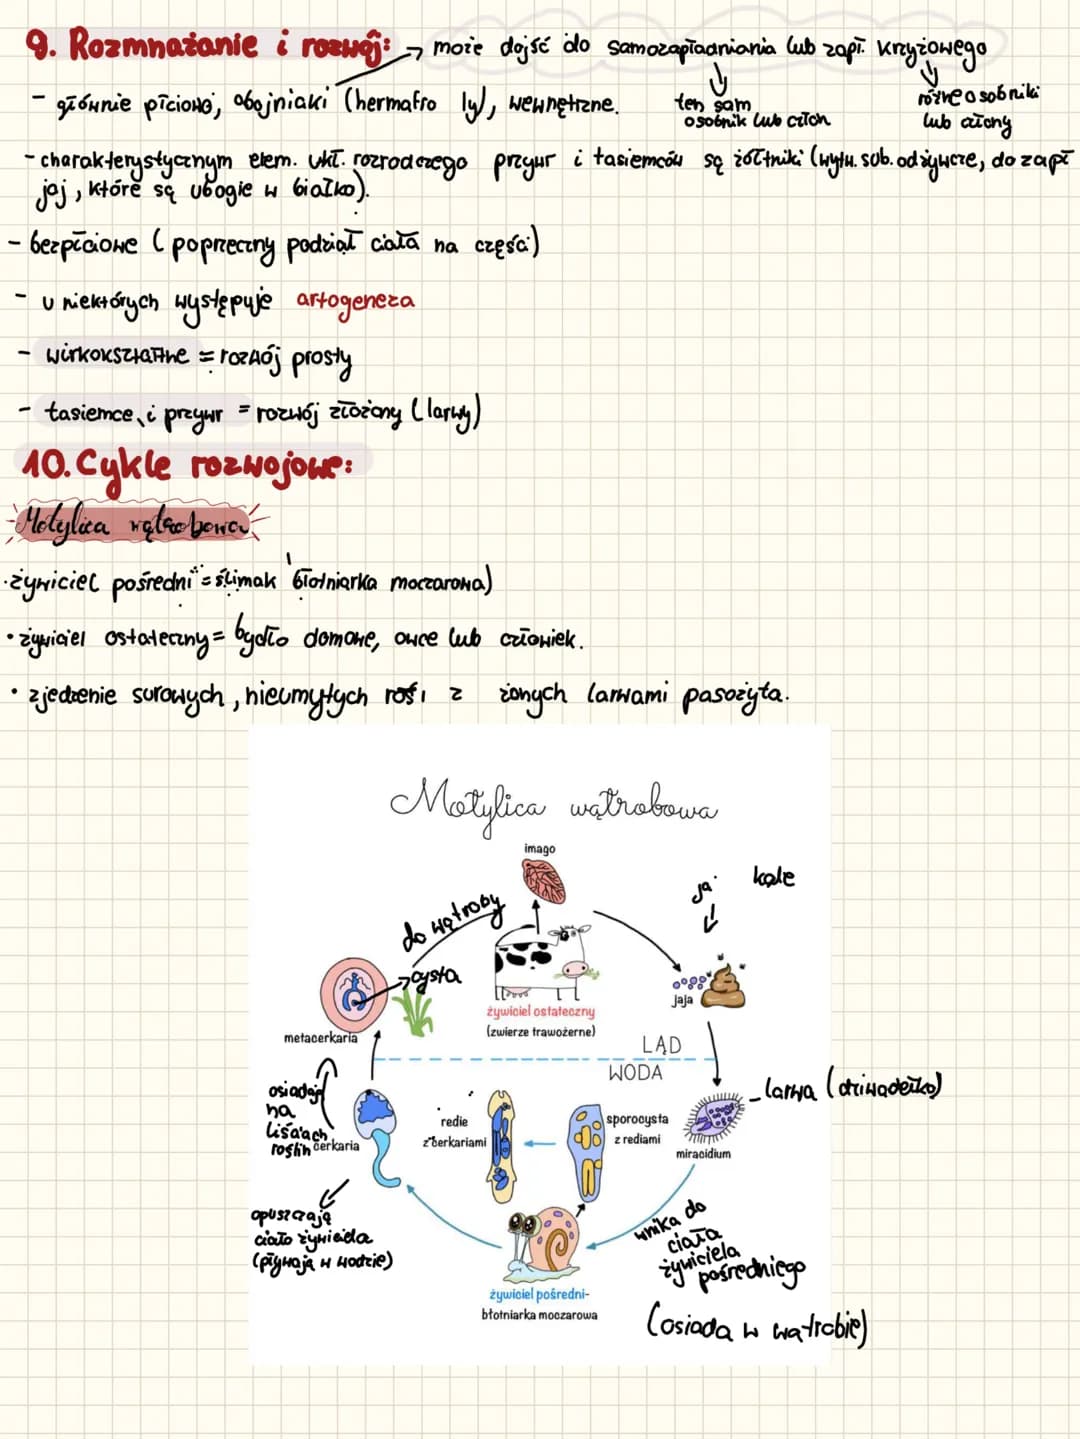 9. Rozmnażanie i rozwój: → może dojść do samozapładniania lub zapł. krzyżowego
- głównie płciowo, obojniaki (hermafro ly), wewnętrzne.
ten sam osobnik lub człon
różne osobniki lub człony
- charakterystycznym elem. ukł. rozrodczego przywr i tasiemców są żółtniki (wytw. sub. odżywcze, do zapł
jaj, które są ubogie w białko).
- bezpłciowe (poprzeczny podział ciała na części)
- u niektórych występuje artogeneza
- wirkokształtne = rozwój prosty
- tasiemce i przywr = rozwój złożony (larwy)
10. Cykle rozwojowe:
Motylica wątrobowa
· żywiciel pośredni = ślimak błotniarka moczarowa)
· żywiciel ostateczny = bydło domowe, owce lub człowiek.
· zjedzenie surowych, nieumytych rośl z żonych larwami pasożyta.
Motylica wątrobowa
imago
ja kale
do wątroby
cysta
jaja
żywiciel ostateczny
(zwierze trawożerne)
metacerkaria
LĄD
WODA
osiadają
na
liściach
roślin
cerkaria
redie
z cerkariami
sporocysta
z rediami
larwa (dziwadełko)
miracidium
opuszczają
ciało żywiciela
(pływają w wodzie)
wnika do
ciała
żywiciela
pośredniego
żywiciel pośredni-
błotniarka moczarowa
(osiada w wątrobie)